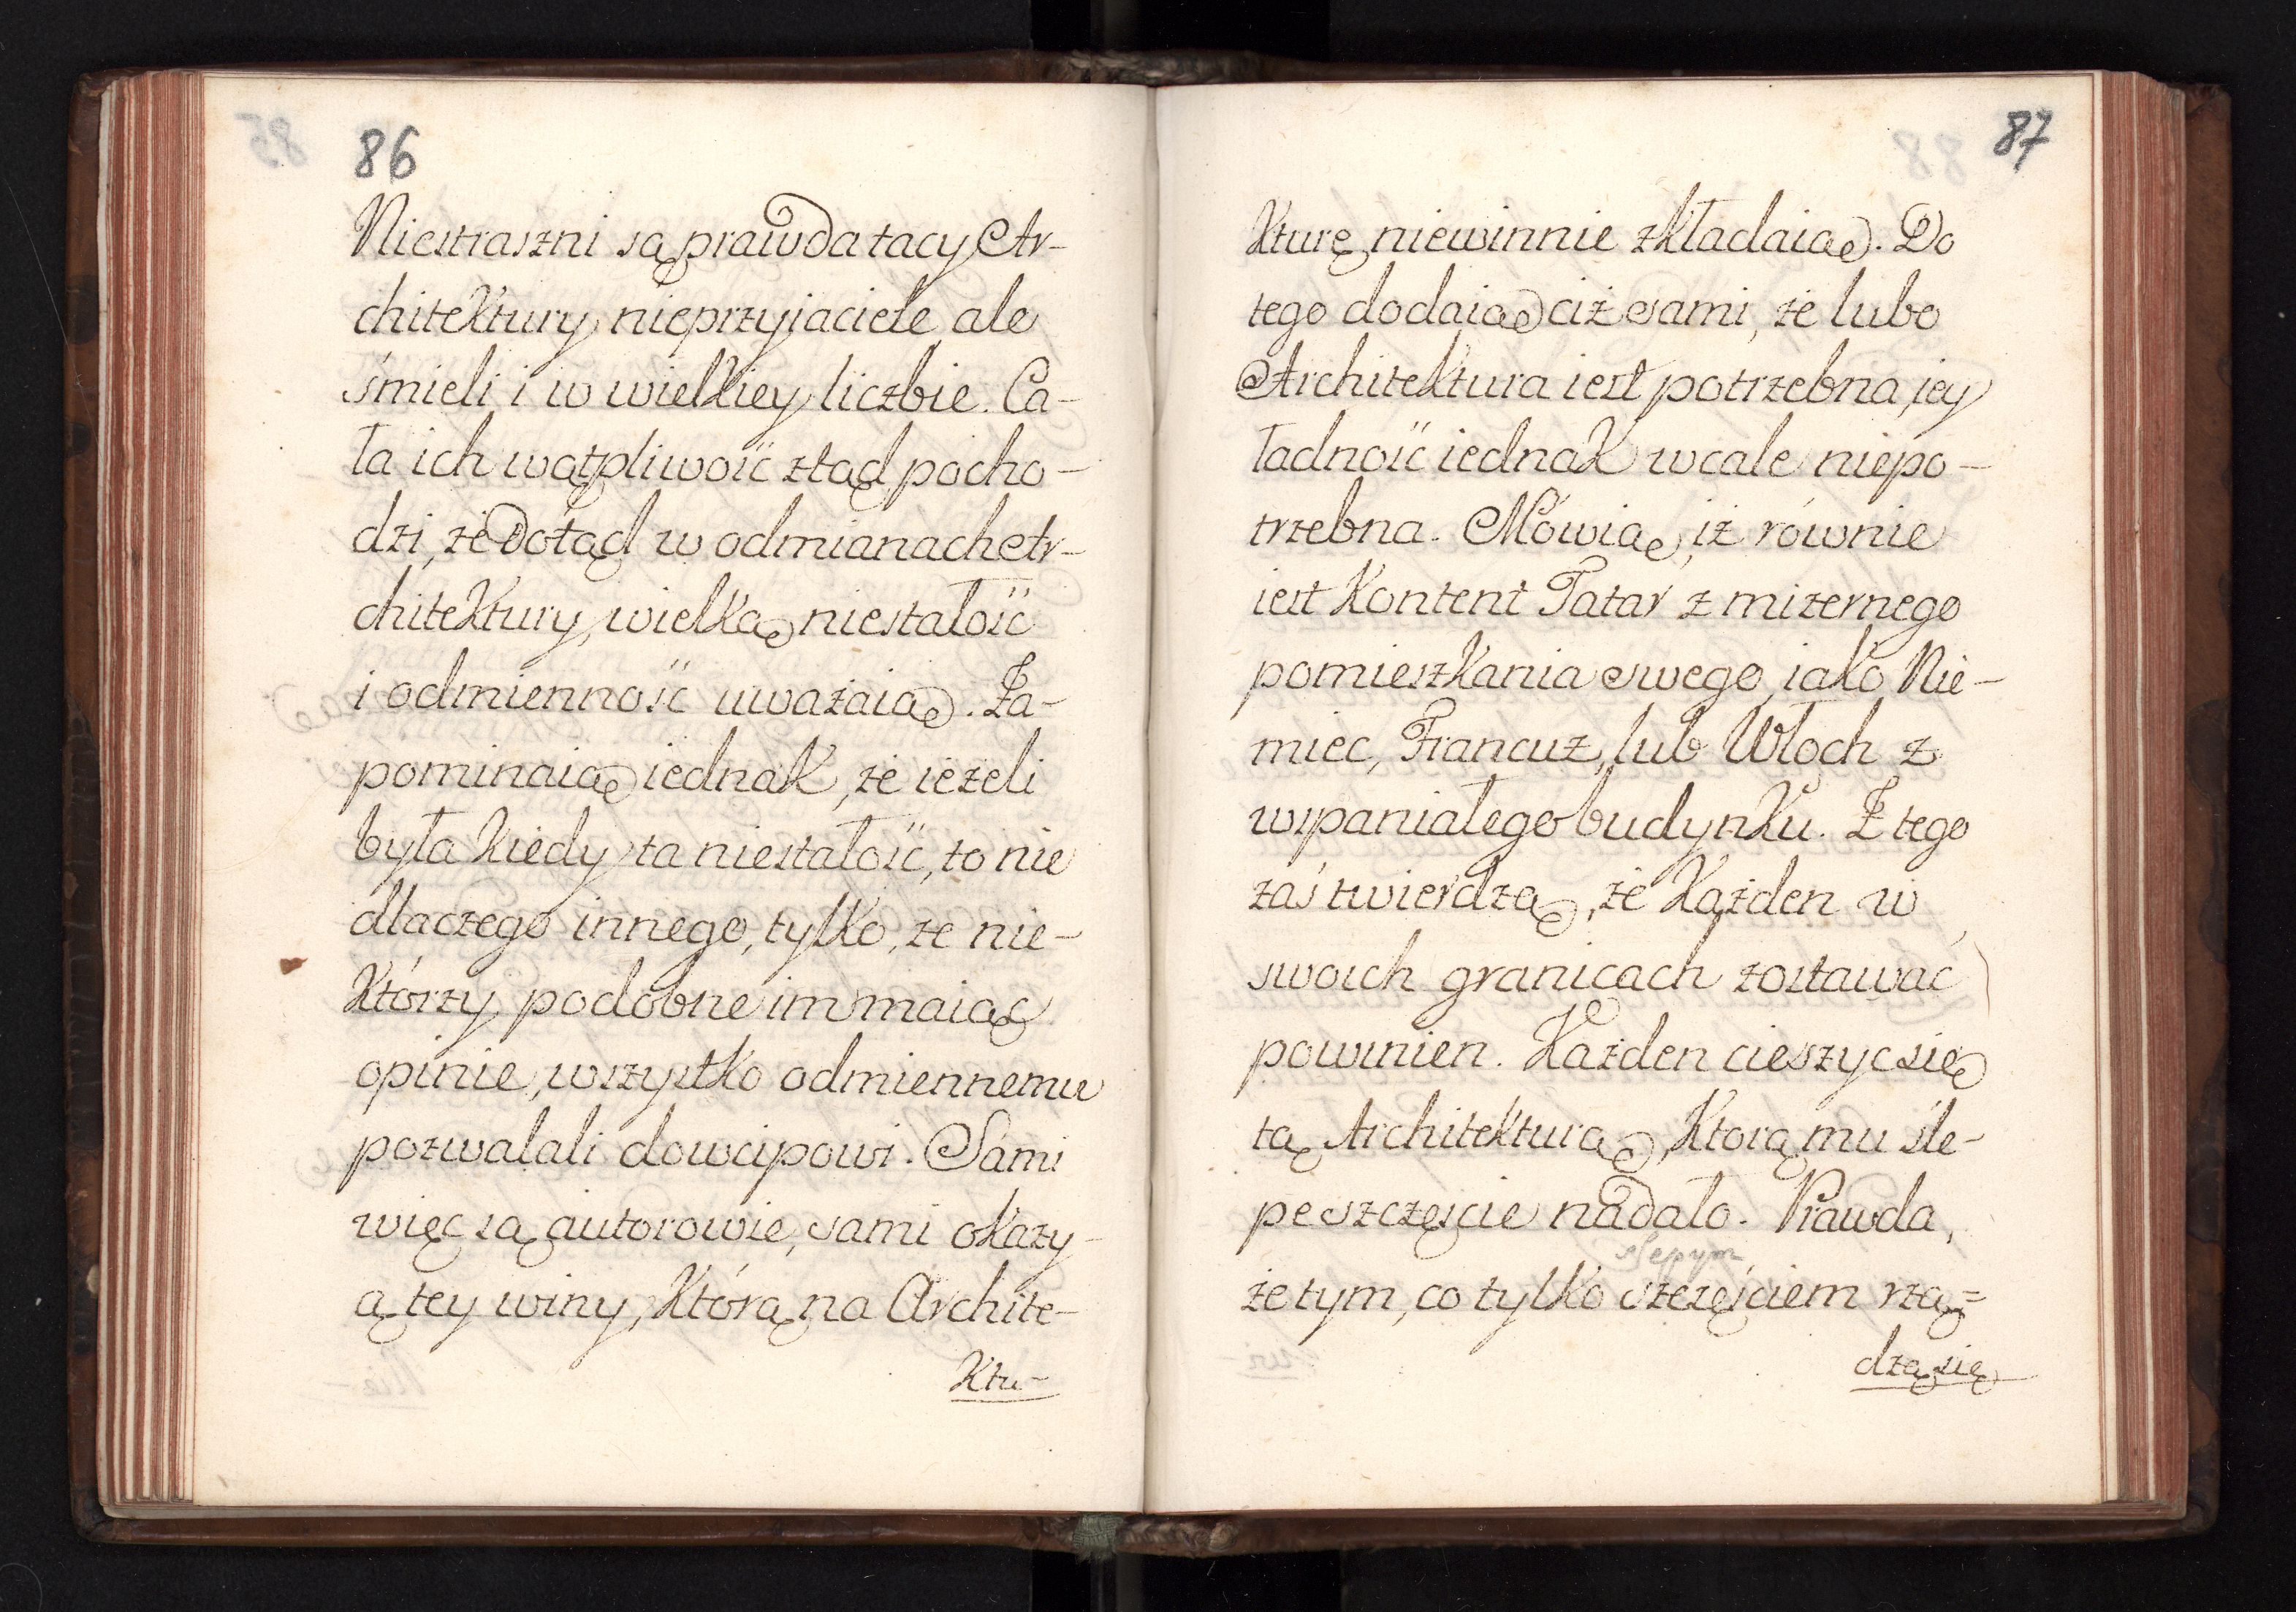 86
Niestraszni są prawda tacy Ar-
chitektury nieprzyjaciele, ale
śmieli i w wielkiey liczbie. Ca-
ła ich wątpliwość ztąd pocho-
dzi, że dotąd w odmianach Ar-
chitektury, wielką niestałość
i odmienność uważaią. Za-
pominaią iednak, że ieżeli
była kiedy ta niestałość, to nie
dlaczego innego, tylko, że nie-
którzy podobne im maiąc
opinie, wszystko odmiennemu
pozwalali dowcipowi. Sami
więc są autorowie, sami okazy-
ą tey winy, którą na Archite-
Ktu-
87
kturę niewinnie zkładaią. Do
tego dodaią ciż sami, że lubo
Architektura iest potrzebna, jey
ładność iednak wcale niepo-
trzebna. Mówią, iż równie
iest kontent Tatar z mizernego
pomieszkania swego, iako Nie-
miec, Francuz, lub Włoch z
wspaniałego budynku. Z tego
zaś twierdzą, że każden w
swoich granicach zostawać
powinien. Każden cieszyc się
tą Architekturą, ktorą mu śle-
pe szczęście nadało. Prawda,
slepym
że tym, co tylko szczęściem rzą=
dzą się